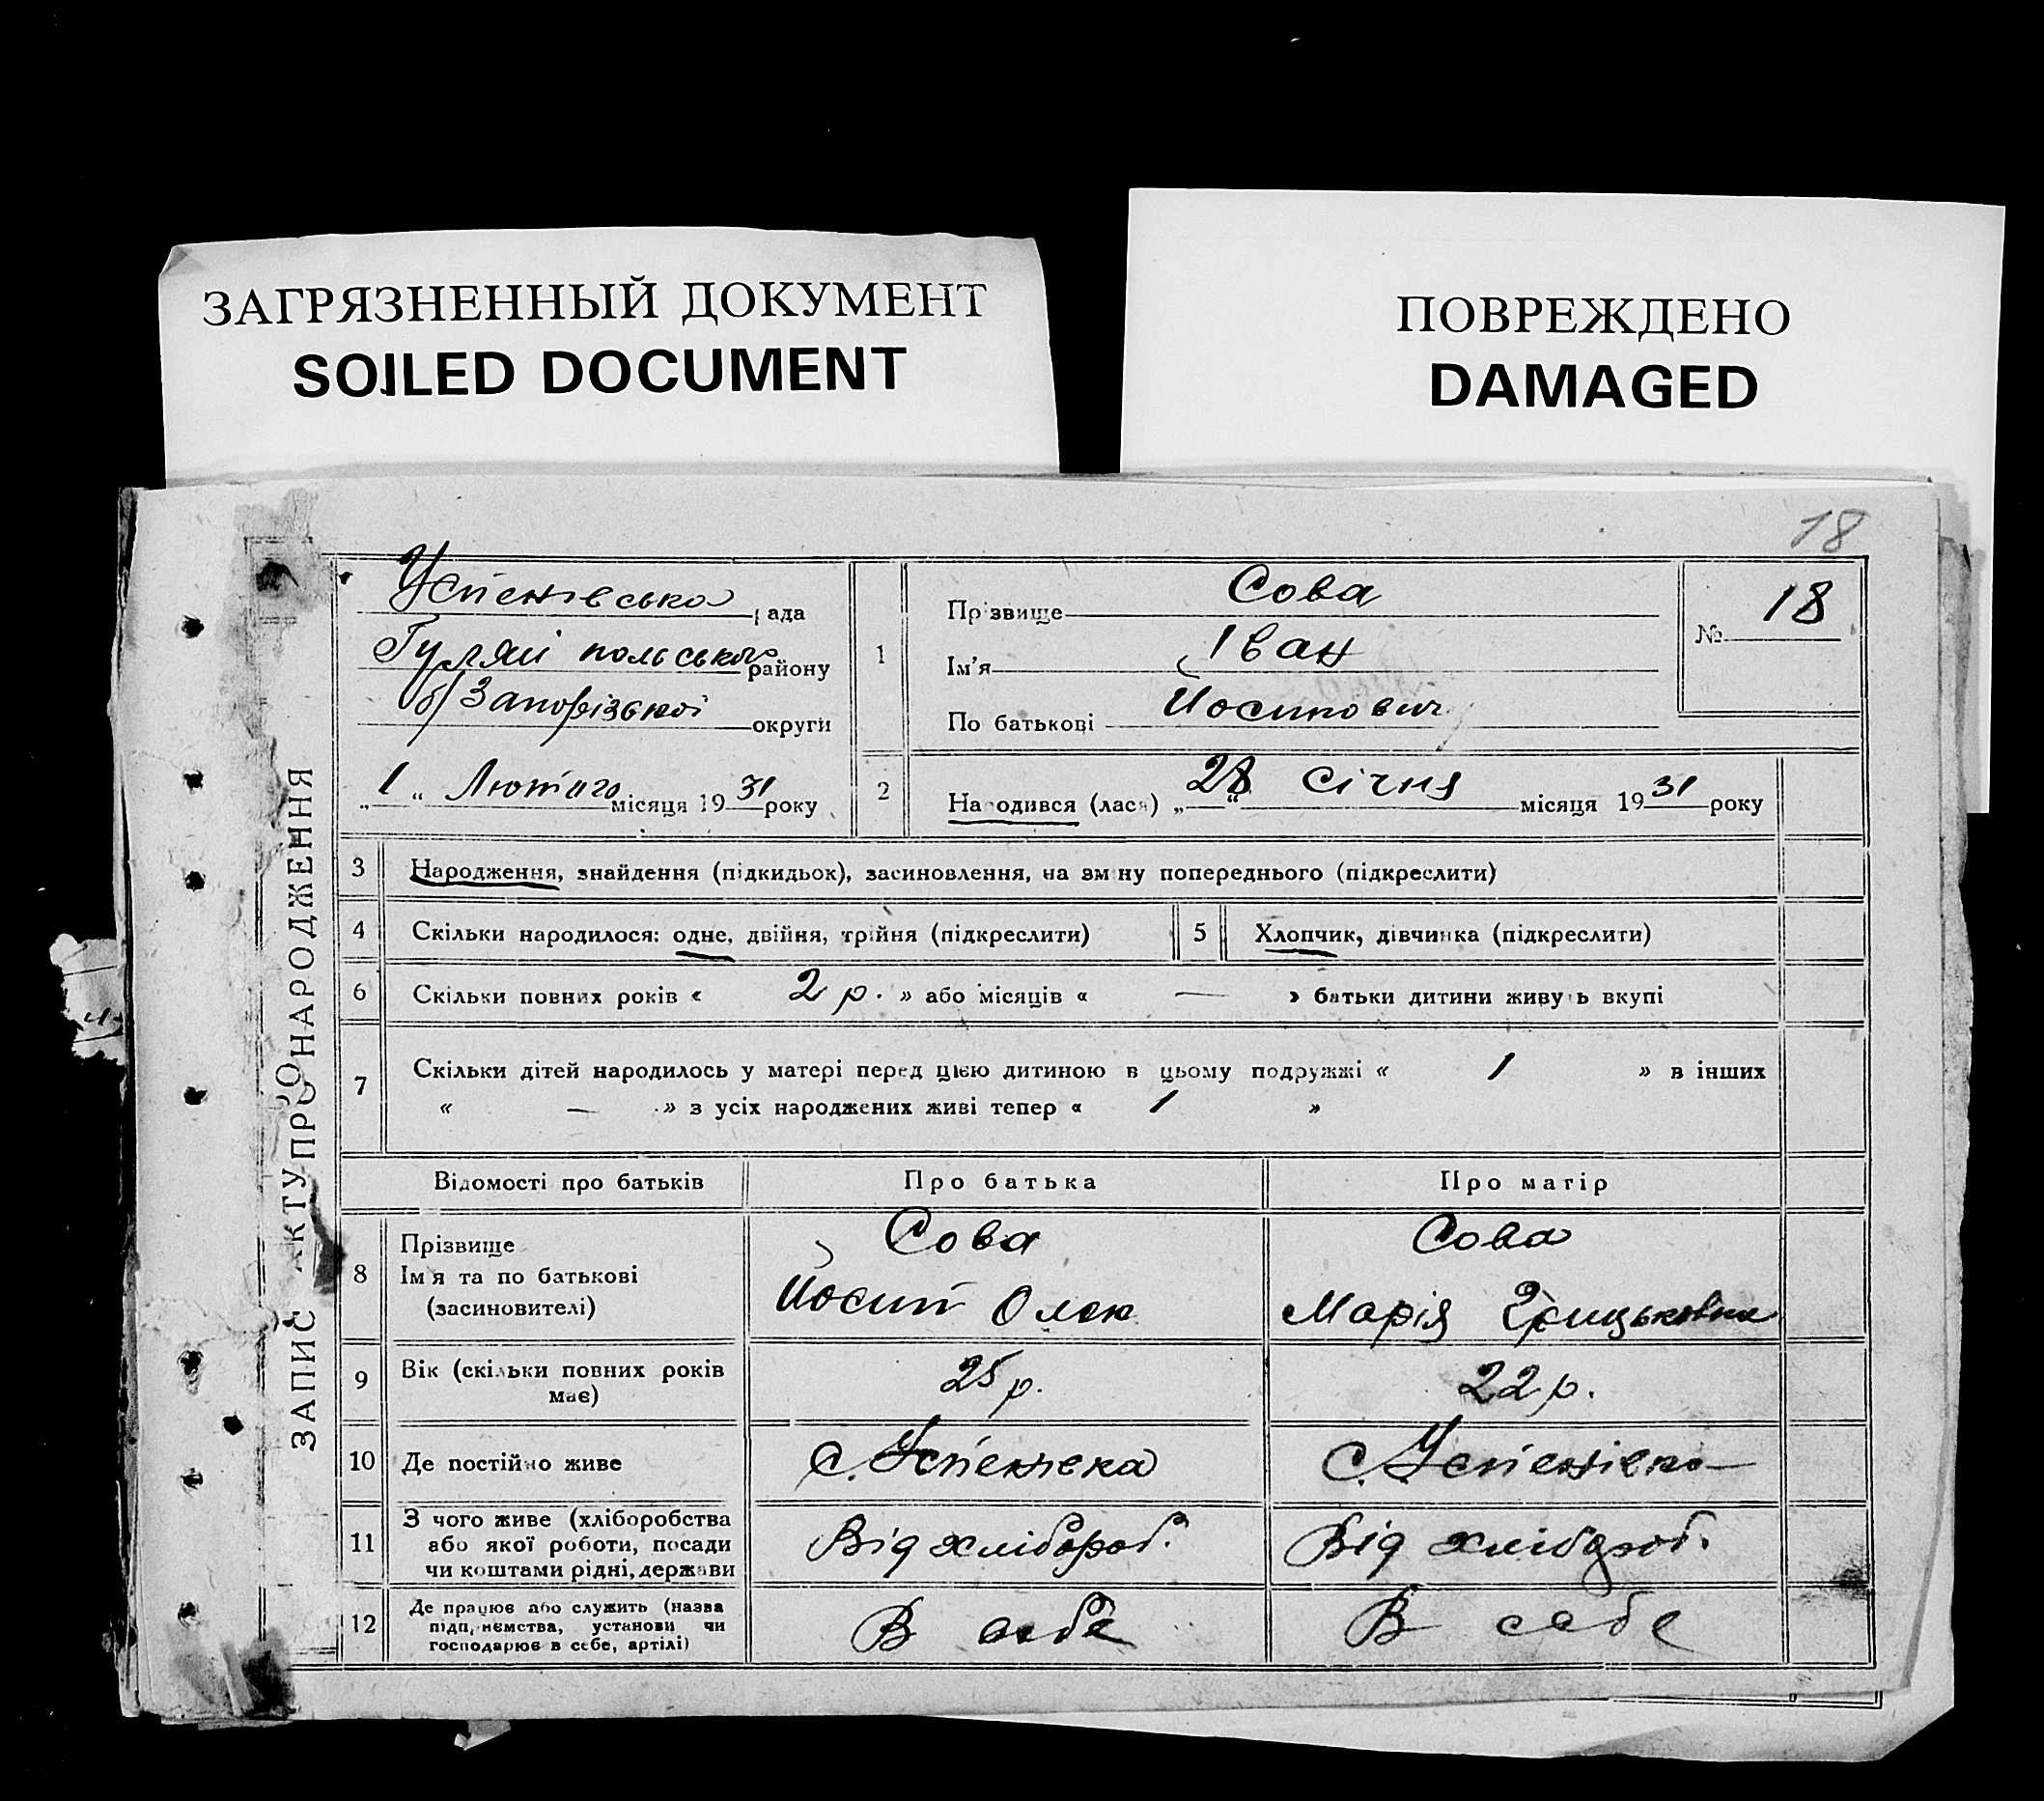 ЗАГРЯЗНЕННЫЙ ДОКУМЕНТ
SOILED DOCUMENT
ПОВРЕЖДЕНО
DAMAGED
18
ЗАПИС АКТУ ПРО НАРОДЖЕННЯ
Успенівська рада
Гуляй польського району
б/Запорізької округи
„1“ Лютого місяця 1931 року
1
Прізвище Сова
Ім'я Іван
По батькові Йосипович
№ 18
2 Народився (лася) „28“ січня місяця 1931 року
3 Народження, знайдення (підкидьок), засиновлення, на зміну попереднього (підкреслити)
4 Скільки народилося: одне, двійня, трійня (підкреслити)
5 Хлопчик, дівчинка (підкреслити)
6 Скільки повних років « 2 р. » або місяців « — » батьки дитини живуть вкупі
7 Скільки дітей народилось у матері перед цією дитиною в цьому подружжі « 1 » в інших
« — » з усіх народжених живі тепер « 1 »
Відомості про батьків Про батька Про матір
8 Прізвище Сова Сова
Ім'я та по батькові Йосип Олек Марія Грицьковна
(засиновителі)
9 Вік (скільки повних років має) 25 р. 22 р.
10 Де постійно живе с. Успенівка с. Успенівка
11 З чого живе (хліборобства
або якої роботи, посади
чи коштами рідні, держави
Від хлібороб. Від хлібороб.
12 Де працює або служить (назва
підприємства, установи чи
господарює в себе, артілі)
В себе В себе